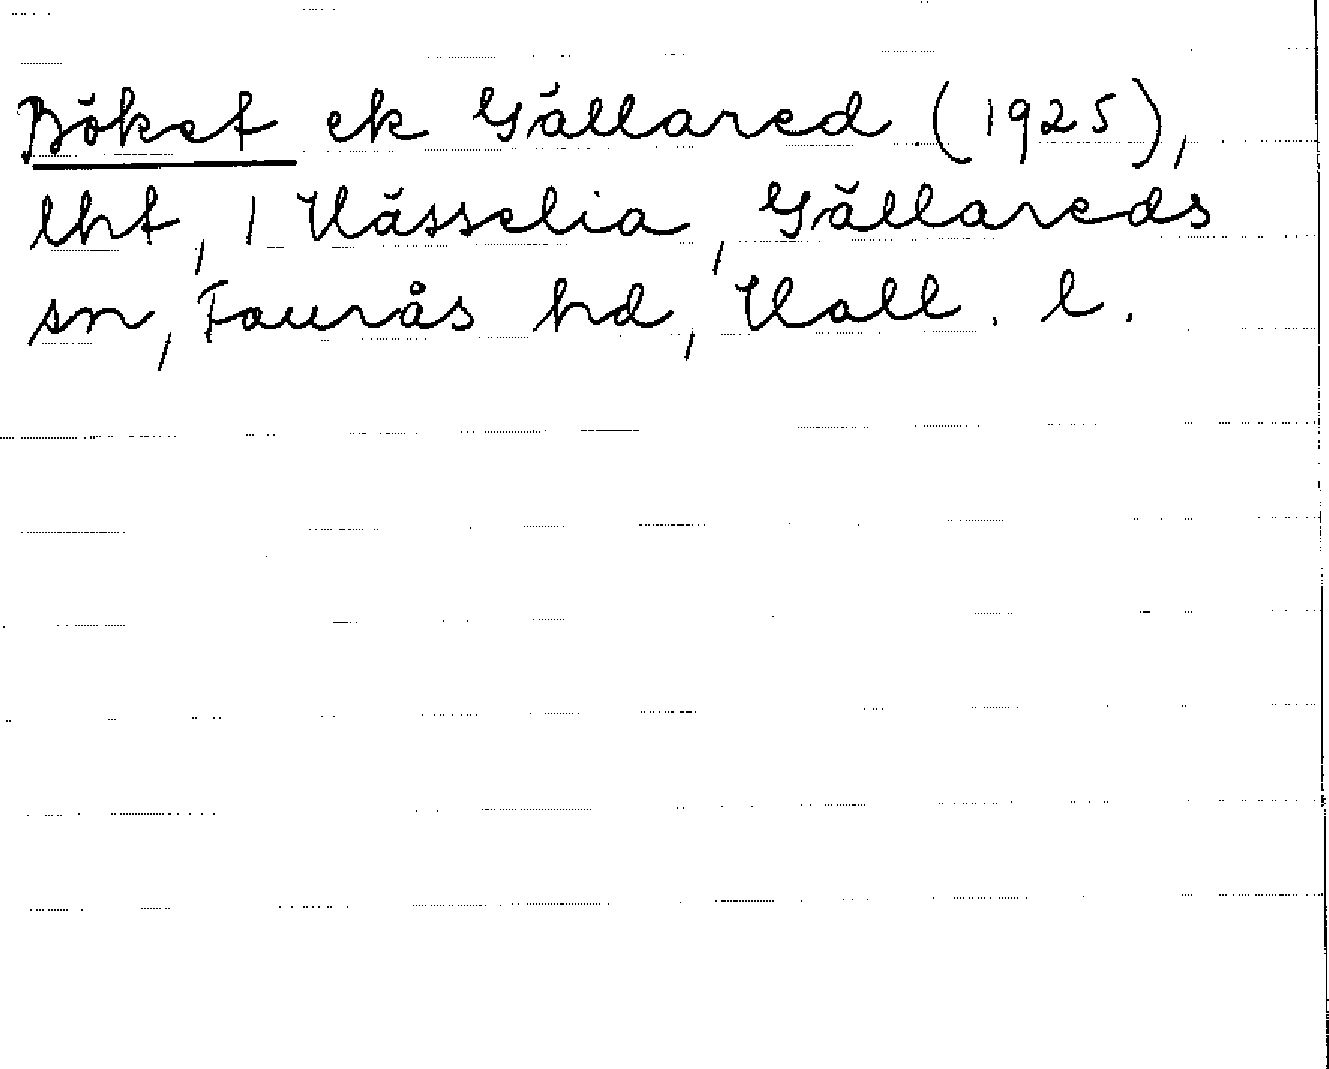 Böket ek Gällared (1925),
lht, 1 Hässelia, Gällareds
sn, Faurås hd, Hall. l.